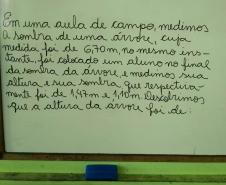 Em uma aula de campo, medimos
a sombra de uma árvore, cuja
medida foi de 6,70m, no mesmo ins-
tante, foi colocado um aluno no final
da sombra da árvore, e medimos sua
altura e sua sombra que respectiva-
mente foi de 1,47m e 1,10m. Descobrimos
que a altura da árvore foi de: